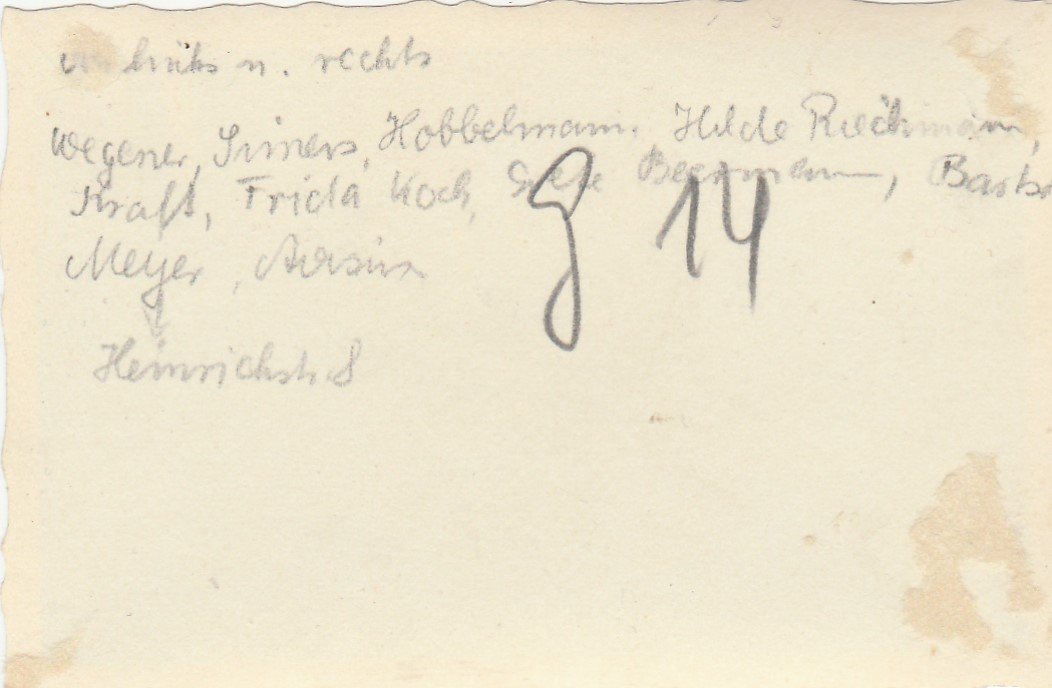 links n. rechts
Wegener, Siniers, Hobbelmann, Hilde Rieckmann,
Kraft, Frida Koch, Beermann,
14
Meyer,
Heinrichstr. 8